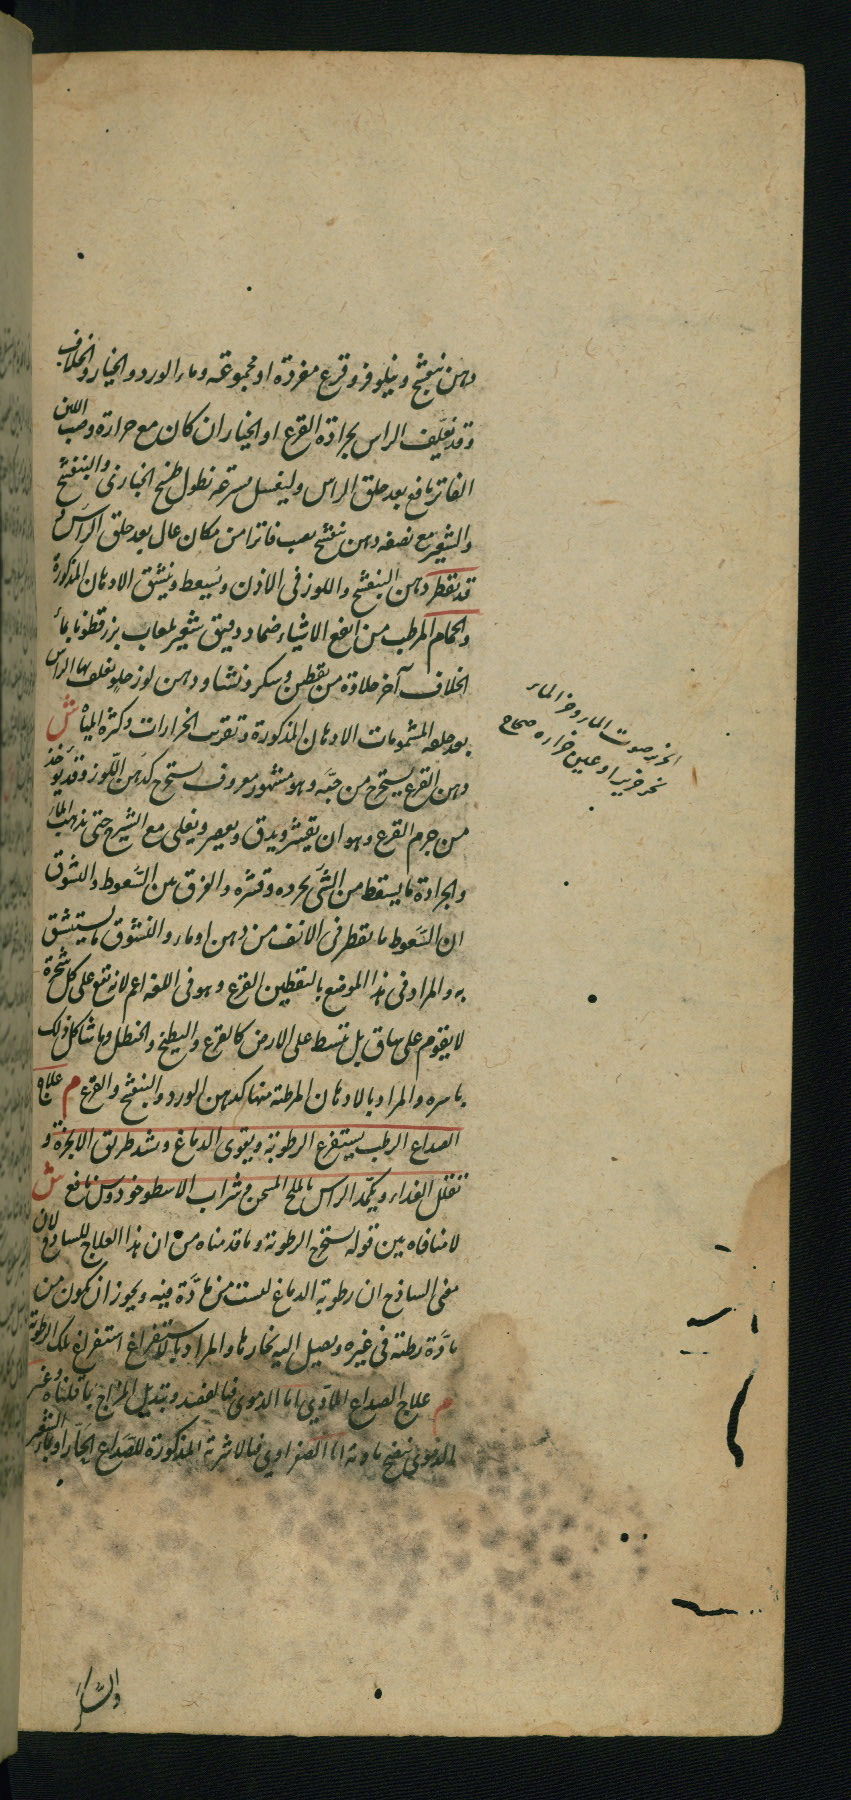 دهن بنفشج ونيلوفر وقرع مفردة او مجموعة وماء الورد والخيار والخلاف
وقد يغلف الراس بجرادة القرع او الخيار ان كان مع حرارة وصب اللبن
الفاتر نافع بعد حلق الراس وليغسل بسرعة نطول طبيخ الخبازى والبنفشج
والشعير مع نصفه دهن بنفشج يصب فاترا من مكان عال بعد حلق الراس و
قد يقطر دهن البنفشج واللوز فى الاذن ويسعط وينشق الادهان المذكورة
والحمام المرطب من انفع الاشياء ضماد دقيق شعير بلعاب بزرقطونا بماء
الخلاف آخر حلاوة من يقطين وسكر ونشا ودهن لوز حلو يغلف بها الراس
بعد حلقه المشمومات الادهان المذكورة وتقريب الخرارات وكثرة المياه ش
دهن القرع يستخرج من حبه وهو مشهور معروف يستخرج كدهن اللوز وقد يؤخذ
من جرم القرع وهو ان يقشر ويدق ويعصر ويغلى مع الشيرج حتى يذهب الماء
والجرادة ما يسقط من الشى بجرده وقشره والفرق بين السعوط والنشوق
ان السعوط ما يقطر فى الانف من دهن او ماء والنشوق ما يستنشق
به والمراد فى هذا الموضع باليقطين القرع وهو فى اللغة اعم لانه يقع على كل شجرة
لا يقوم على ساق بل تنبسط على الارض كالقرع والبطيخ والحنظل وما شاكل ذلك
باسره والمراد بالادهان المرطبة منها كدهن الورد والبنفشج والقرع م علاج
الصداع الرطب يستفرغ الرطوبة ويقوى الدماغ ويشد طريق الابخرة و
تقلل الغذاء ويكمد الراس بالملح المسخن وشراب الاسطوخودوس نافع ش
لا منافاة بين قوله يستفرغ الرطوبة وما قدمناه من ان هذا العلاج للساذج لان
معنى الساذج ان رطوبة الدماغ ليست من مادة فيه ويجوز ان يكون من
مادة رطبة فى غيره ويصل اليه بخارها والمراد بالاستفراغ استفراغ تلك الرطوبة
م علاج الصداع المادى اما الدموى فبالفصد وتبديل المزاج بما قلناه وغير
الدموى بنضج مادته اما الصفراوى فبالاشربة المذكورة للصداع الحار او بماء الشعير
والسكر
الخرير صوت الماء وخر الماء
يخر خريرا وعين خرارة صحاح